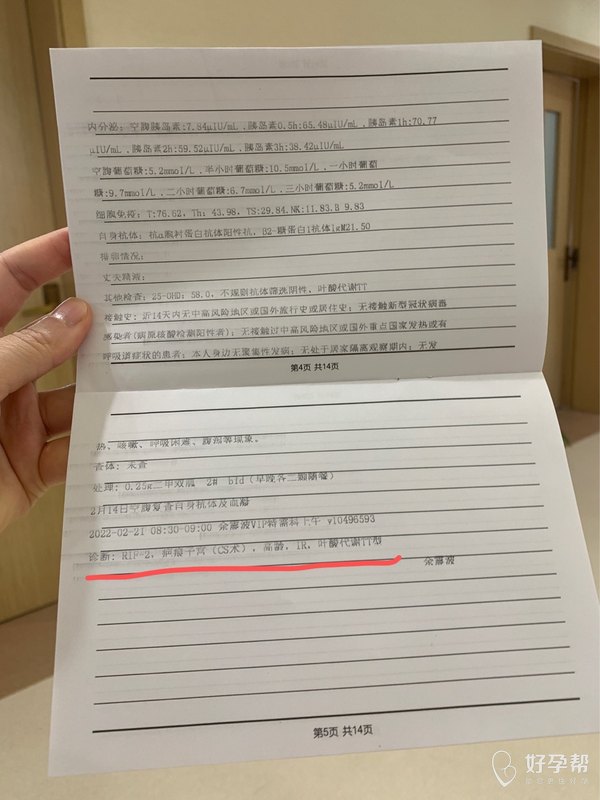 内分泌：空腹胰岛素:7.84μIU/mL，胰岛素0.5h:65.48μIU/mL，胰岛素1h:70.77
μIU/mL，胰岛素2h:59.52μIU/mL，胰岛素3h:38.42μIU/mL
空腹葡萄糖:5.2mmol/L，半小时葡萄糖:10.5mmol/L，一小时葡萄
糖:9.7mmol/L，二小时葡萄糖:6.7mmol/L，三小时葡萄糖:5.2mmol/L
细胞免疫：T:76.62，Th：43.98，TS:29.84.NK:11.83.B 9.83
自身抗体：抗α胞衬蛋白抗体阳性抗，B2-糖蛋白1抗体IgM21.50
排卵情况：
丈夫精液：
其他检查：25-OHD：58.0，不规则抗体筛选阴性，叶酸代谢TT
接触史：近14天内无中高风险地区或国外旅行史或居住史；无接触新型冠状病毒
感染者(病原核酸检测阳性者)；无接触过中高风险地区或国外重点国家发热或有
呼吸道症状的患者；本人身边无聚集性发病；无处于居家隔离观察期内；无发
第4页 共14页
热、咳嗽、呼吸困难、腹泻等现象。
查体：未查
处理：0.25g二甲双胍 2# bid（早晚各二颗随餐）
2月14日空腹复查自身抗体及血糖
2022-02-21 08:30-09:00 余蓁波VIP特需科上午 v10496593
诊断：RIF-2，疤痕子宫（CS术），高龄，IR，叶酸代谢TT型
第5页 共14页
好孕帮